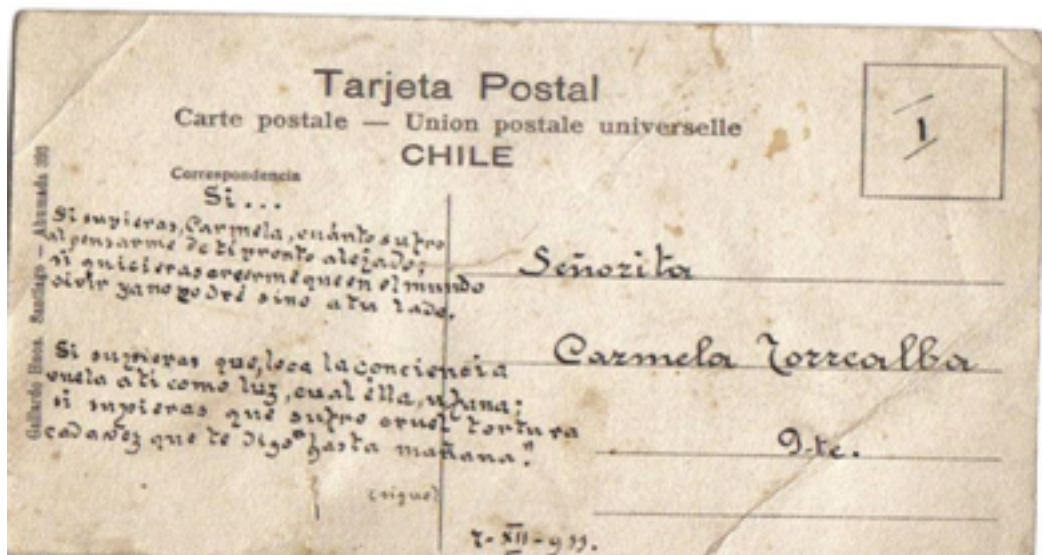 Tarjeta Postal
Carte postale — Union postale universelle
CHILE
1
Correspondencia
Si...
Si supieras, Carmela, cuánto sufro
al pensarme de ti pronto alejado;
si quicieras creerme que en el mundo
vivir ya no podré sino a tu lado.
Si supieras que, loca la conciencia
vuela a ti como luz, cual élla, ufana;
si supieras que sufro cruel tortura
cada vez que te digo "hasta mañana."
(sigue)
Señorita
Carmela Torrealba
Gallardo Hnos. Santiago — Ahumada